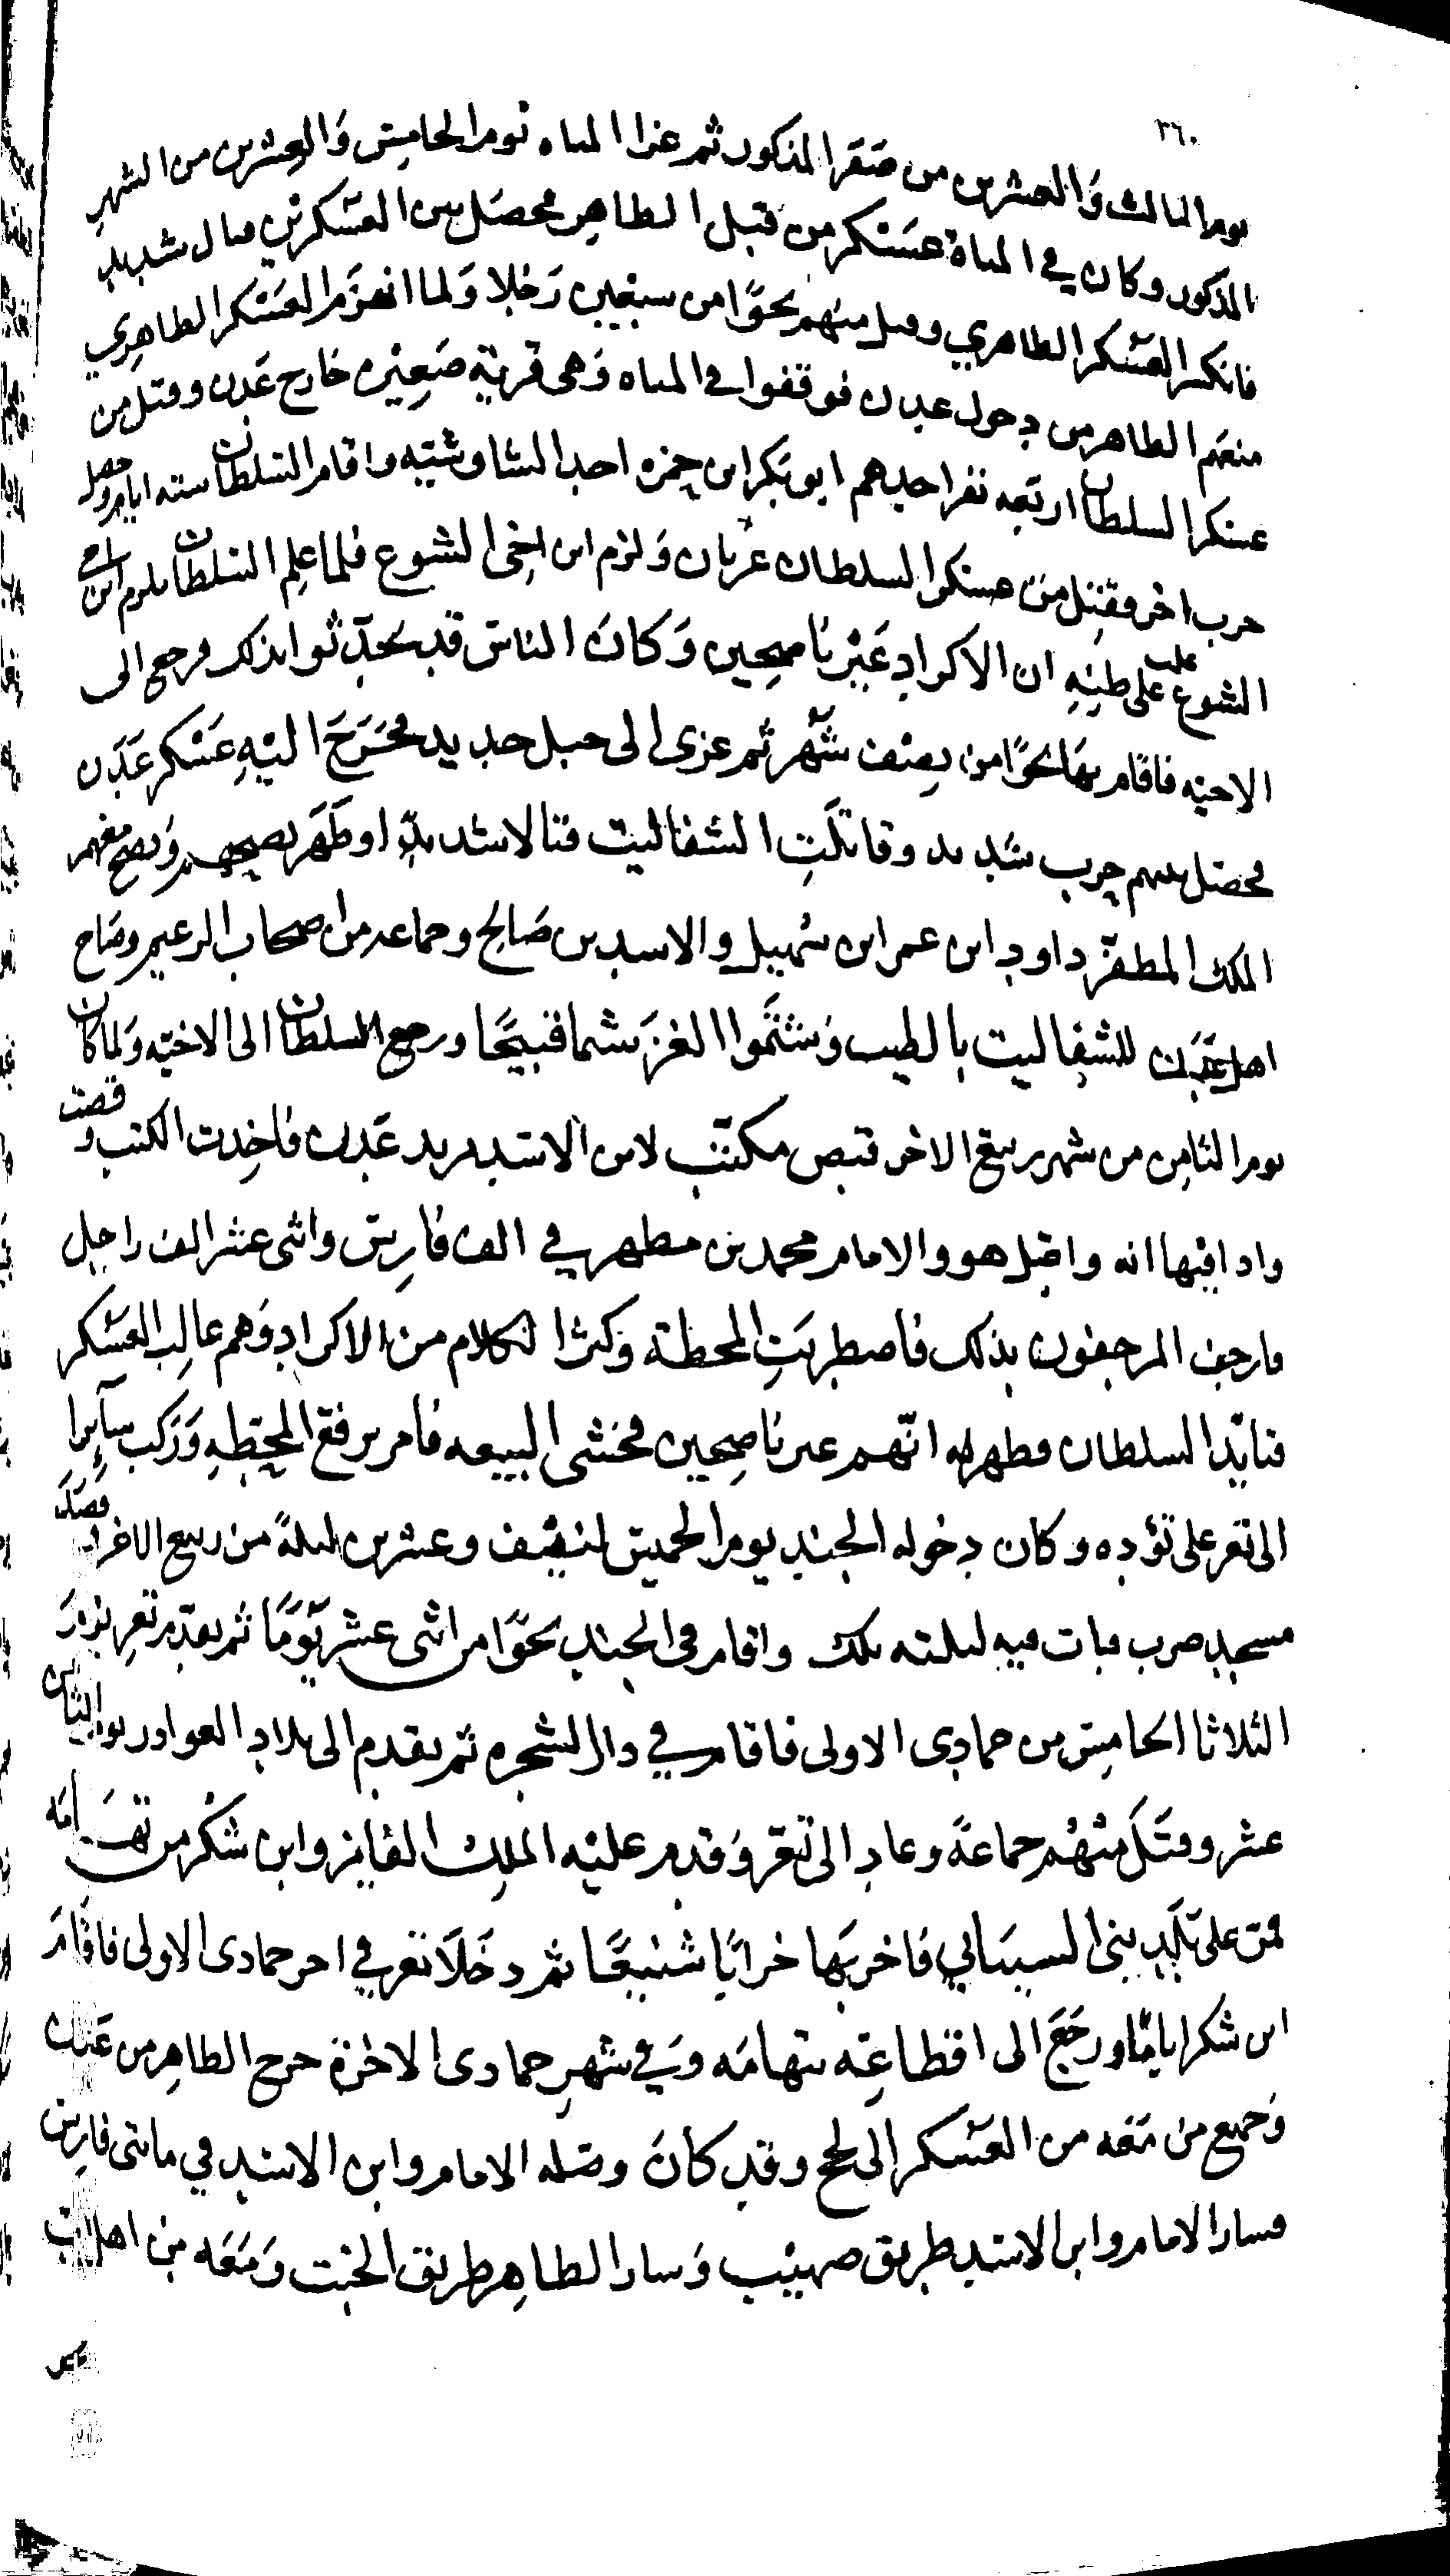 ٣٦٠
يوم الثالث والعشرين من صفر المذكور ثم غزا المباه يوم الخامس والعشرين من الشهر
المذكور وكان في المباة عسكر من قبل الظاهر فحصل بين العسكرين قتال شديد
فانكسر العسكر الظاهري وقتل منهم نحوًا من سبعين رجلا ولما انهزم العسكر الظاهري
منعهم الظاهر من دخول عدن فوقفوا في المباه وهي قرية صغيره خارج عدن وقتل من
عسكر السلطان اربعه نفر احدهم ابو بكر ابن حمزه احد الشاوشيه واقام السلطان سته ايام وحصل
حرب اخر وقتل من عسكر السلطان غزيان ولزم ابن اخي الشوع فلما علم السلطان بلزم ابن اخي
الشوع غلب على ظنه ان الاكراد غير ناصحين وكان الناس قد تحدثوا بذلك فرجع الى
الاخبه فاقام بها نحوًا من نصف شهر ثم غزى الى جبل حديد فخرج اليه عسكر عدن
فحصل بينهم حرب شديد وقاتلت الشفاليت قتالا شديدًا وظهر نصحهم ونصح معهم
الملك المظفر داود ابن عمر ابن سهيل والاسد بن صالح وجماعه من اصحاب الزعيم وصاح
اهل عدن للشفاليت بالطيب وشتموا الغز شتما قبيحًا ورجع السلطان الى الاخبه ولما كان
يوم الثامن من شهر ربيع الاخر قبض مكتب لابن الاسد يريد عدن فاخذت الكتب وقضت
واذا فيها انه واصل هو والامام محمد بن مطهر في الف فارس واثنى عشر الف راجل
فارجف المرجفون بذلك فاضطربت المحطة وكثر الكلام من الاكراد وهم غالب العسكر
فتأيد السلطان فظهر له انهم غير ناصحين فخشى البيعه فامر برفع المحطه وركب سآيرا
الى تعز على تؤده وكان دخوله الجند يوم الخميس لنيف وعشرين ليلة من ربيع الاخر وقصد
مسجد صرب فبات فيه ليلته تلك واقام في الجند نحوًا من اثنى عشر يومًا ثم تقدم تعز يوم
الثلاثا الخامس من جمادى الاولى فاقام في دار الشجره ثم تقدم الى بلاد العوادر يوم الثامن
عشر وقتل منهم جماعة وعاد الى تعز وقدم عليه الملك الفايز وابن شكر من تهامه
فمر على بلد بني السيسائي فاخربها خرابًا شنيعًا ثم دخلا تعز في اخر جمادى الاولى فاقام
ابن شكر ايامًا ورجع الى اقطاعه بتهامه وفي شهر جمادى الاخرة خرج الظاهر من عدن
وجميع من معه من العسكر الى لحج وقد كان وصله الامام وابن الاسد في مائتى فارس
فسار الامام وابن الاسد طريق صهيب وسار الظاهر طريق الخبت ومعه من اهل